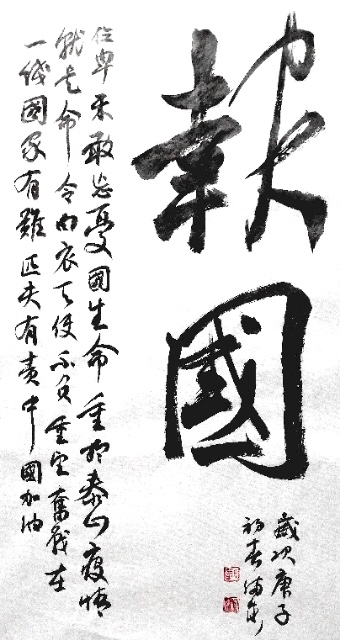 報國
歲次庚子
初春
位卑未敢忘憂國生命重於泰山疫情
就是命令白衣天使不負重奮戰在
一綫國家有難匹夫有責中國加油